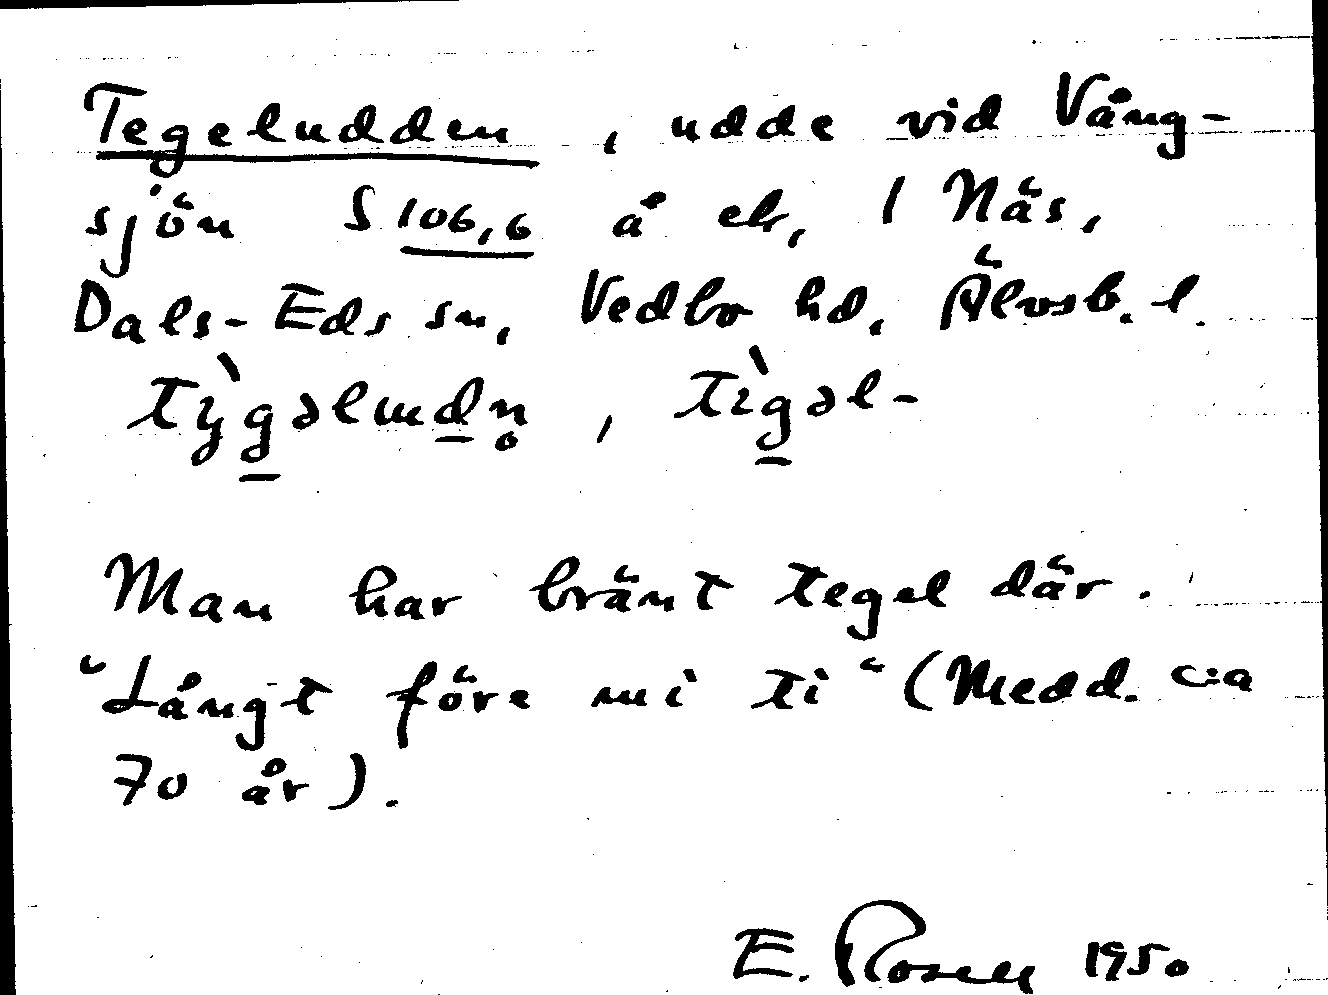 Tegeludden, udde vid Vång-
sjön S 106,6 å ek, 1 Näs,
Dals-Eds sn, Vedbo hd, Älvsb. l.
tỳgəlɯdn̥, tìgəl-
Man har bränt tegel där.
"Långt före mi ti" (Medd. c:a
70 år).
E. Rosell 1950